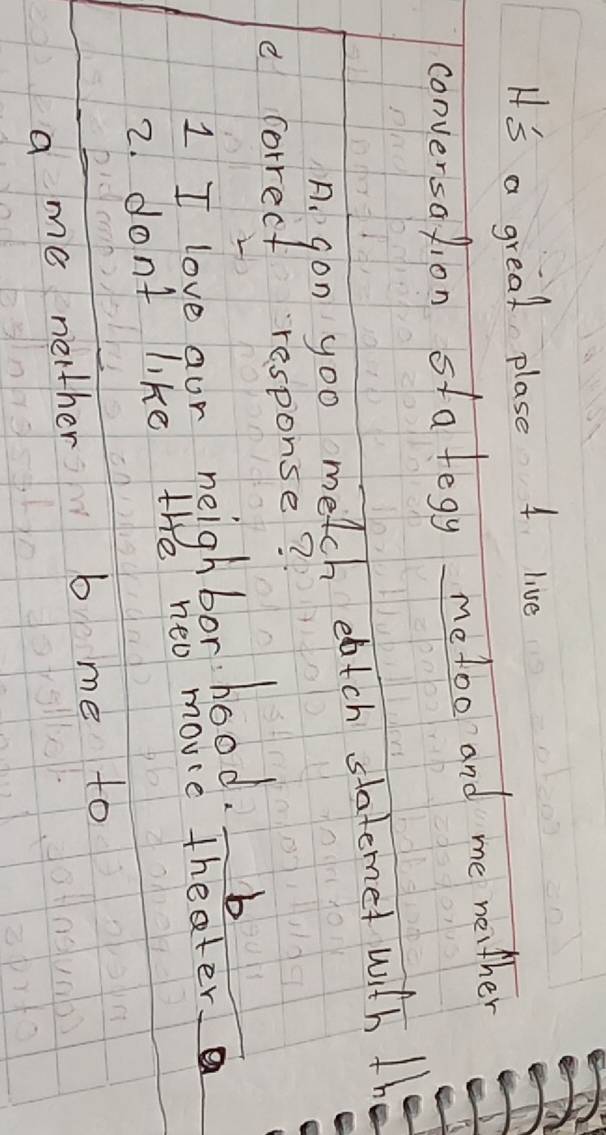 H's a great plase t live
conversation sta tegy me too and me neither
A. gon yoo metch eatch statemet with th
e correct response?
1 I love aur neighbor hood. b
2. dont like the neo movie theater a
a me neither b me to